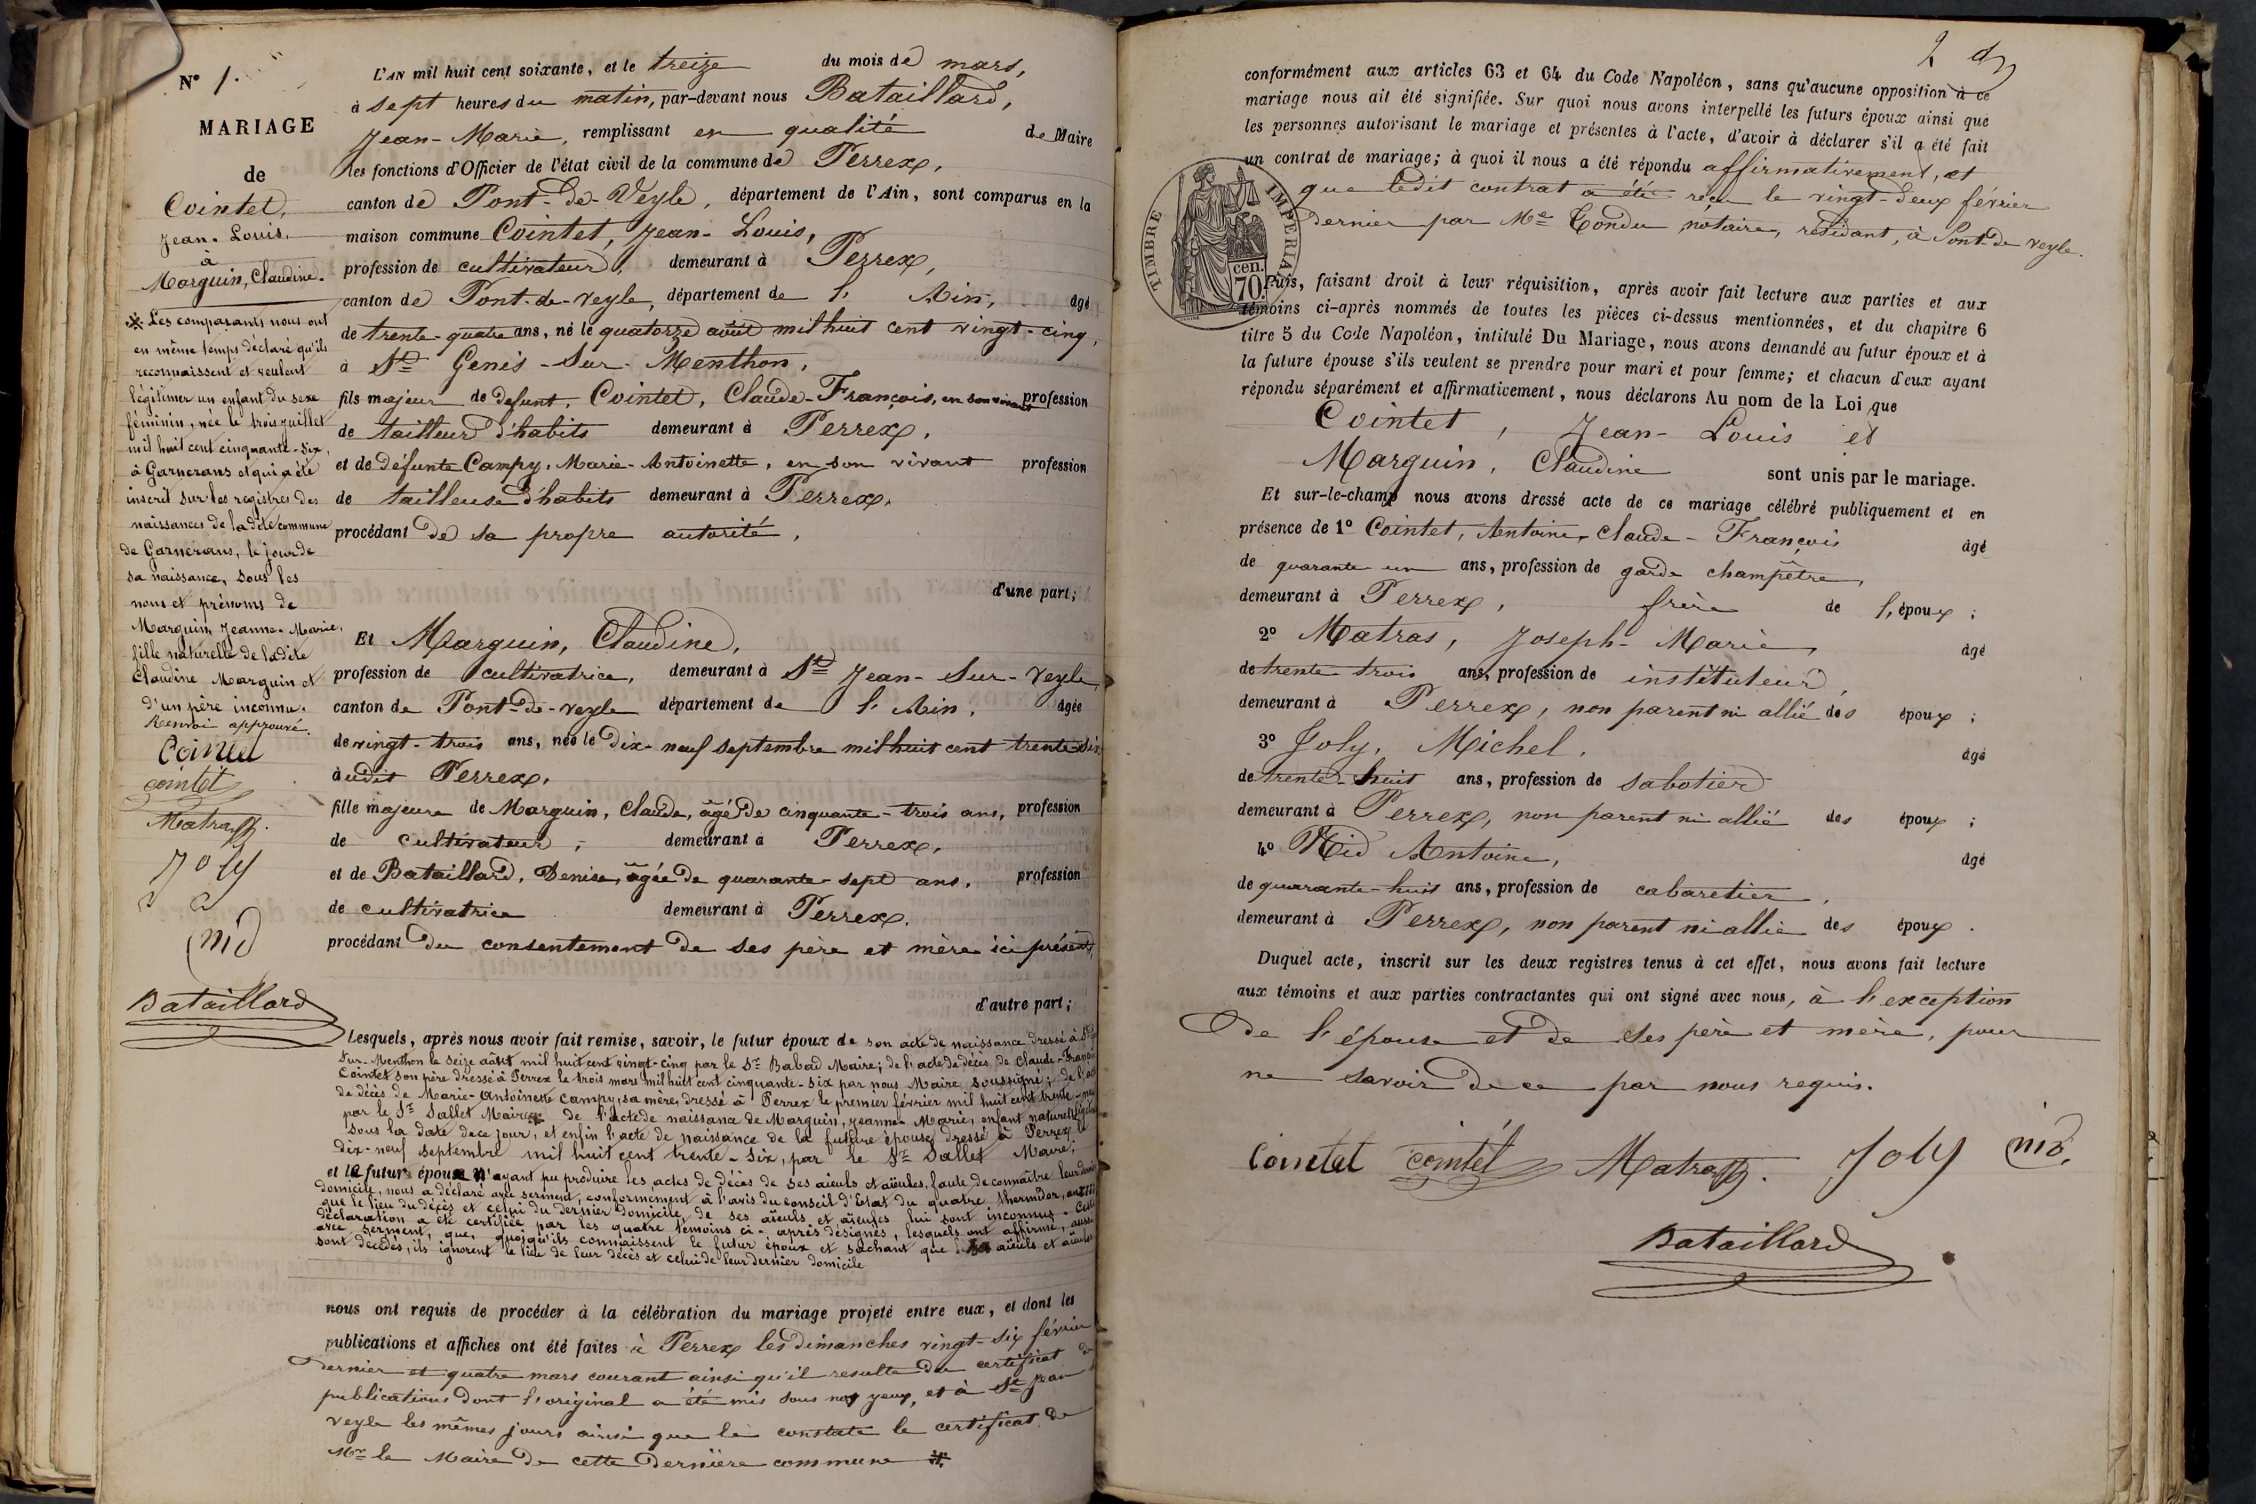 N° 1.
MARIAGE
de
Cointet,
Jean-Louis,
à
Marguin, Claudine.
※ Les comparants nous ont
en même temps déclaré qu'ils
reconnaissent et veulent
légitimer un enfant du sexe
féminin, née le trois juillet
mil huit cent cinquante-six,
à Garnerans et qui a été
inscrit sur les registres des
naissances de ladite commune
de Garnerans, le jour de
sa naissance, sous les
noms et prénoms de
Marguin, Jeanne-Marie,
fille naturelle de ladite
Claudine Marguin et
d'un père inconnu.
Renvoi approuvé.
Cointet
cointet
Matras
Joly
nid
Bataillard
L'AN mil huit cent soixante, et le treize du mois de mars,
à sept heures du matin, par-devant nous Bataillard,
Jean-Marie, remplissant en qualité de Maire
les fonctions d'Officier de l'état civil de la commune de Perrex,
canton de Pont-de-Veyle, département de l'Ain, sont comparus en la
maison commune Cointet, Jean-Louis,
profession de cultivateur, demeurant à Perrex,
canton de Pont-de-veyle, département de l'Ain, âgé
de trente-quatre ans, né le quatorze août mil huit cent vingt-cinq,
à St Genis-Sur-Menthon,
fils majeur de defunt, Cointet, Claude-François, en son vivant profession
de tailleur d'habits demeurant à Perrex,
et de défunte Campy, Marie-Antoinette, en son vivant profession
de tailleuse d'habits demeurant à Perrex,
procédant de sa propre autorité,
d'une part;
Et Marguin, Claudine,
profession de cultivatrice, demeurant à St Jean-Sur-Veyle,
canton de Pont-de-veyle département de l'Ain, âgée
de vingt-trois ans, née le dix-neuf septembre mil huit cent trente-six
à udit Perrex,
fille majeure de Marguin, Claude, âgé de cinquante-trois ans, profession
de cultivateur, demeurant à Perrex,
et de Bataillard, Denise, âgée de quarante-sept ans, profession
de cultivatrice demeurant à Perrex,
procédant du consentement de ses père et mère ici présents,
d'autre part;
Lesquels, après nous avoir fait remise, savoir, le futur époux de son acte de naissance dressé à St
Sur-Menthon le seize août mil huit cent vingt-cinq par le Sr Babad Maire; de l'acte de décès de Claude-François
Cointet son père dressé à Perrex le trois mars mil huit cent cinquante-six par nous Maire soussigné; de l'acte
de décès de Marie-Antoinette Campy, sa mère, dressé à Perrex le premier février mil huit cent trente-neuf
par le Sr Sallet Maire; de l'acte de naissance de Marguin, Jeanne-Marie, enfant naturel
sous la date de ce jour, et enfin l'acte de naissance de la future épouse dressé à Perrex le
dix-neuf septembre mil huit cent trente-six, par le Sr Sallet Maire;
et le futur époux n'ayant pu produire les actes de décès de ses aïeuls et aïeules, faute de connaître leur dernier
domicile, nous a déclaré avec serment, conformément à l'avis du conseil d'Etat du quatre thermidor, an XIII
que le lieu du décès et celui du dernier domicile de ses aïeuls et aïeules lui sont inconnus. Cette
déclaration a été certifiée par les quatre témoins ci-après désignés, lesquels ont affirmé, aussi
avec serment, que, quoiqu'ils connaissent le futur époux et sachant que ses aïeuls et aïeules
sont décédés, ils ignorent le lieu de leur décès et celui de leur dernier domicile
nous ont requis de procéder à la célébration du mariage projeté entre eux, et dont les
publications et affiches ont été faites à Perrex les dimanches vingt-six février
dernier et quatre mars courant ainsi qu'il resulte du certificat de
publications dont l'original a été mis sous nos yeux, et à St Jean
Veyle les mêmes jours ainsi que le constate le certificat de
Mr le Maire de cette dernière commune ※.
2
conformément aux articles 63 et 64 du Code Napoléon, sans qu'aucune opposition à ce
mariage nous ait été signifiée. Sur quoi nous avons interpellé les futurs époux ainsi que
les personnes autorisant le mariage et présentes à l'acte, d'avoir à déclarer s'il a été fait
un contrat de mariage; à quoi il nous a été répondu affirmativement, et
que ledit contrat a été reçu le vingt-deux février
dernier par Me Tondu, notaire, résidant, à Pont de veyle.
TIMBRE IMPERIAL
cen.
70
Puis, faisant droit à leur réquisition, après avoir fait lecture aux parties et aux
témoins ci-après nommés de toutes les pièces ci-dessus mentionnées, et du chapitre 6
titre 5 du Code Napoléon, intitulé Du Mariage, nous avons demandé au futur époux et à
la future épouse s'ils veulent se prendre pour mari et pour femme; et chacun d'eux ayant
répondu séparément et affirmativement, nous déclarons Au nom de la Loi que
Cointet, Jean-Louis et
Marguin, Claudine sont unis par le mariage.
Et sur-le-champ nous avons dressé acte de ce mariage célébré publiquement et en
présence de 1° Cointet, Antoine, Claude-François âgé
de quarante un ans, profession de garde champêtre,
demeurant à Perrex, frère de l'époux;
2° Matras, Joseph-Marie, âgé
de trente trois ans, profession de instituteur,
demeurant à Perrex, non parent ni allié des époux;
3° Joly, Michel, âgé
de trente-huit ans, profession de sabotier
demeurant à Perrex, non parent ni allié des époux;
4° Nid Antoine, âgé
de quarante-huit ans, profession de cabaretier,
demeurant à Perrex, non parent ni allié des époux.
Duquel acte, inscrit sur les deux registres tenus à cet effet, nous avons fait lecture
aux témoins et aux parties contractantes qui ont signé avec nous, à l'exception
de l'épouse et de ses père et mère, pour
ne savoir de ce par nous requis.
Cointet cointet Matras Joly nid.
Bataillard